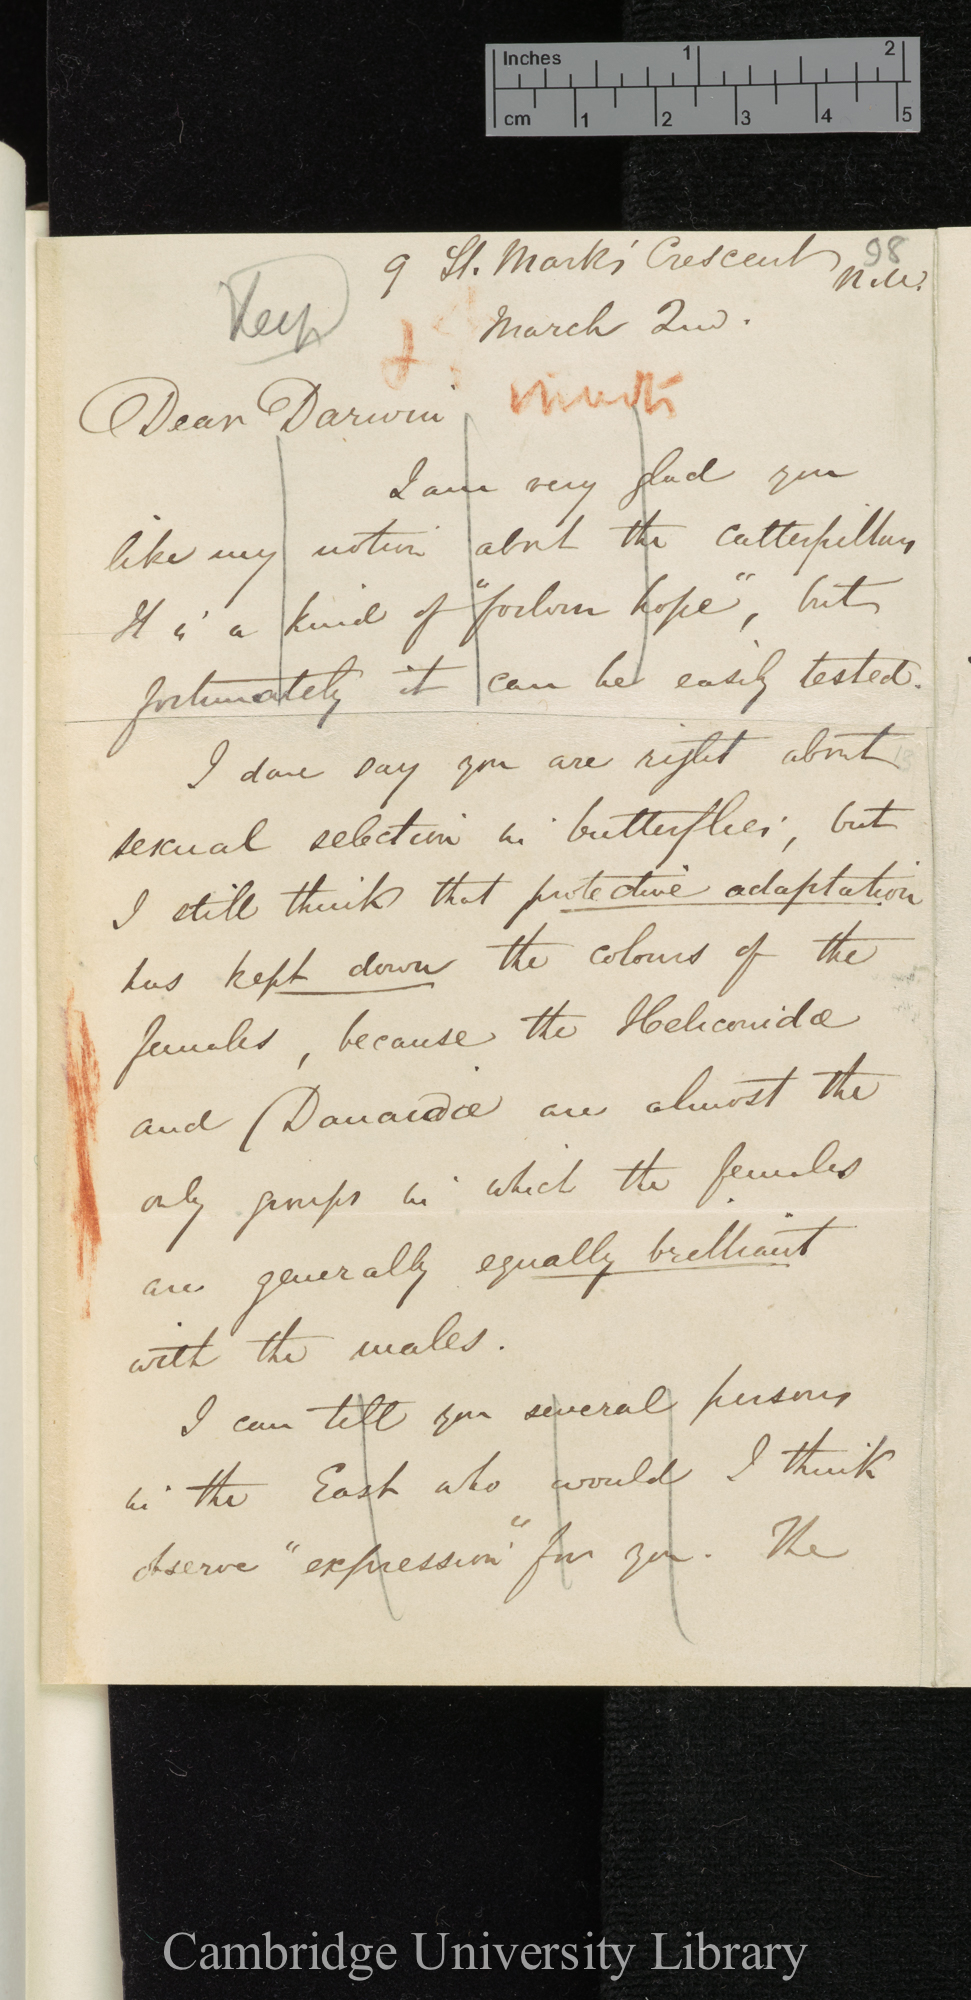 Inches 1 2
cm 1 2 3 4 5
98
9 St. Mark's Crescent
N.W.
Keep
March 2nd.
Dear Darwin
I am very glad you
like my notion about the catterpillars
It is a kind of "forlorn hope", but
fortunately it can be easily tested.
I dare say you are right about
sexual selection in butterflies, but
I still think that protective adaptation
has kept down the colours of the
females, because the Heliconidæ
and Danaidæ are almost the
only groups in which the females
are generally equally brilliant
with the males.
I can tell you several persons
in the East who would I think
observe "expression" for you. The
Cambridge University Library